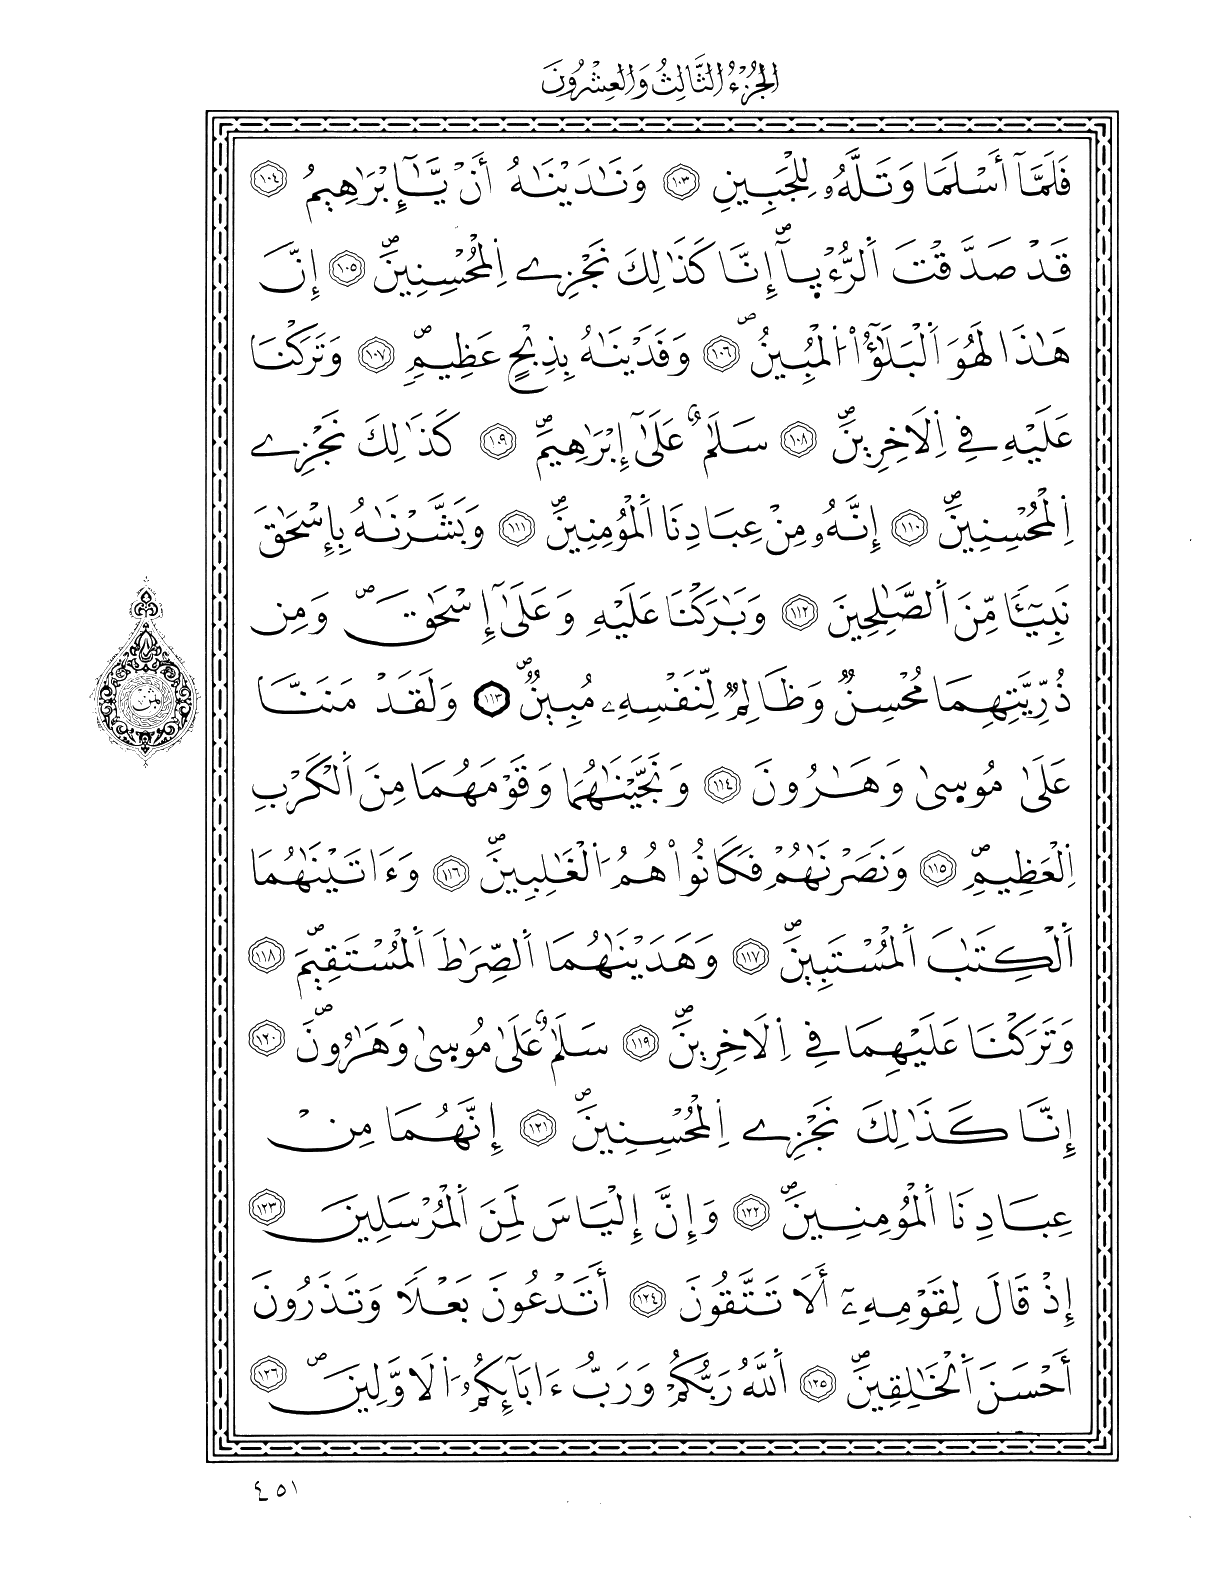 الجُزْءُ الثَّالِثُ وَالعِشْرُونَ
فَلَمَّآ أَسْلَمَا وَتَلَّهُۥ لِلْجَبِينِ ١٠٣ وَنَٰدَيْنَٰهُ أَنْ يَّٰٓإِبْرَٰهِيمُ ١٠٤
قَدْ صَدَّقْتَ اَ۬لرُّءْي۪آۖ إِنَّا كَذَٰلِكَ نَجْزِے اِ۬لْمُحْسِنِينَۖ ١٠٥ إِنَّ
هَٰذَا لَهُوَ اَ۬لْبَلَٰٓؤُاْ اُ۬لْمُبِينُۖ ١٠٦ وَفَدَيْنَٰهُ بِذِبْحٍ عَظِيمٖۖ ١٠٧ وَتَرَكْنَا
عَلَيْهِ فِے اِ۬لَاخِرِينَۖ ١٠٨ سَلَٰمٌ عَلَىٰٓ إِبْرَٰهِيمَۖ ١٠٩ كَذَٰلِكَ نَجْزِے
اِ۬لْمُحْسِنِينَۖ ١١٠ إِنَّهُۥ مِنْ عِبَادِنَا اَ۬لْمُؤْمِنِينَۖ ١١١ وَبَشَّرْنَٰهُ بِإِسْحَٰقَ
نَبِيٓـٔاٗ مِّنَ اَ۬لصَّٰلِحِينَ ١١٢ وَبَٰرَكْنَا عَلَيْهِ وَعَلَىٰٓ إِسْحَٰقَۖ وَمِن
ذُرِّيَّتِهِمَا مُحْسِنٞ وَظَالِمٞ لِّنَفْسِهِۦ مُبِينٞۖ ١١٣ وَلَقَدْ مَنَنَّا
ثمن
عَلَىٰ مُوس۪يٰ وَهَٰرُونَ ١١٤ وَنَجَّيْنَٰهُمَا وَقَوْمَهُمَا مِنَ اَ۬لْكَرْبِ
اِ۬لْعَظِيمِۖ ١١٥ وَنَصَرْنَٰهُمْ فَكَانُواْ هُمُ اُ۬لْغَٰلِبِينَۖ ١١٦ وَءَاتَيْنَٰهُمَا
اَ۬لْكِتَٰبَ اَ۬لْمُسْتَبِينَۖ ١١٧ وَهَدَيْنَٰهُمَا اَ۬لصِّرَٰطَ اَ۬لْمُسْتَقِيمَۖ ١١٨
وَتَرَكْنَا عَلَيْهِمَا فِے اِ۬لَاخِرِينَۖ ١١٩ سَلَٰمٌ عَلَىٰ مُوس۪يٰ وَهَٰرُونَۖ ١٢٠
إِنَّا كَذَٰلِكَ نَجْزِے اِ۬لْمُحْسِنِينَۖ ١٢١ إِنَّهُمَا مِنْ
عِبَادِنَا اَ۬لْمُؤْمِنِينَۖ ١٢٢ وَإِنَّ إِلْيَاسَ لَمِنَ اَ۬لْمُرْسَلِينَ ١٢٣
إِذْ قَالَ لِقَوْمِهِۦٓ أَلَا تَتَّقُونَ ١٢٤ أَتَدْعُونَ بَعْلاٗ وَتَذَرُونَ
أَحْسَنَ اَ۬لْخَٰلِقِينَۖ ١٢٥ اَ۬للَّهُ رَبُّكُمْ وَرَبُّ ءَابَآئِكُمُ اُ۬لَاوَّلِينَۖ ١٢٦
٤٥١